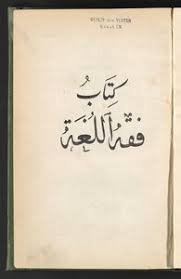 كِتَابُ
فِقْهُ ٱللُّغَةِ